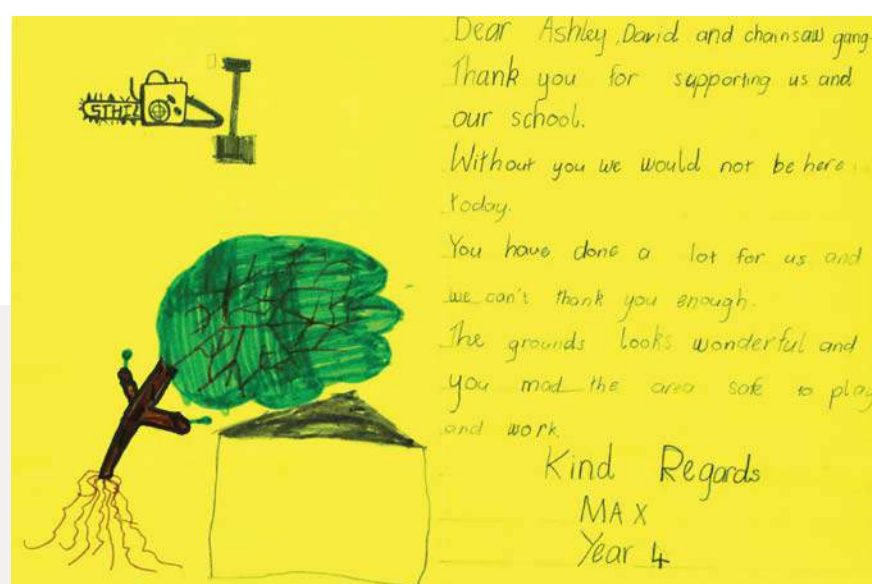 STIHL
Dear Ashley, David and chainsaw gang.
Thank you for supporting us and
our school.
Without you we would not be here
today.
You have done a lot for us and
we can't thank you enough.
The grounds looks wonderful and
you mad the area safe to play
and work.
Kind Regards
MAX
Year 4